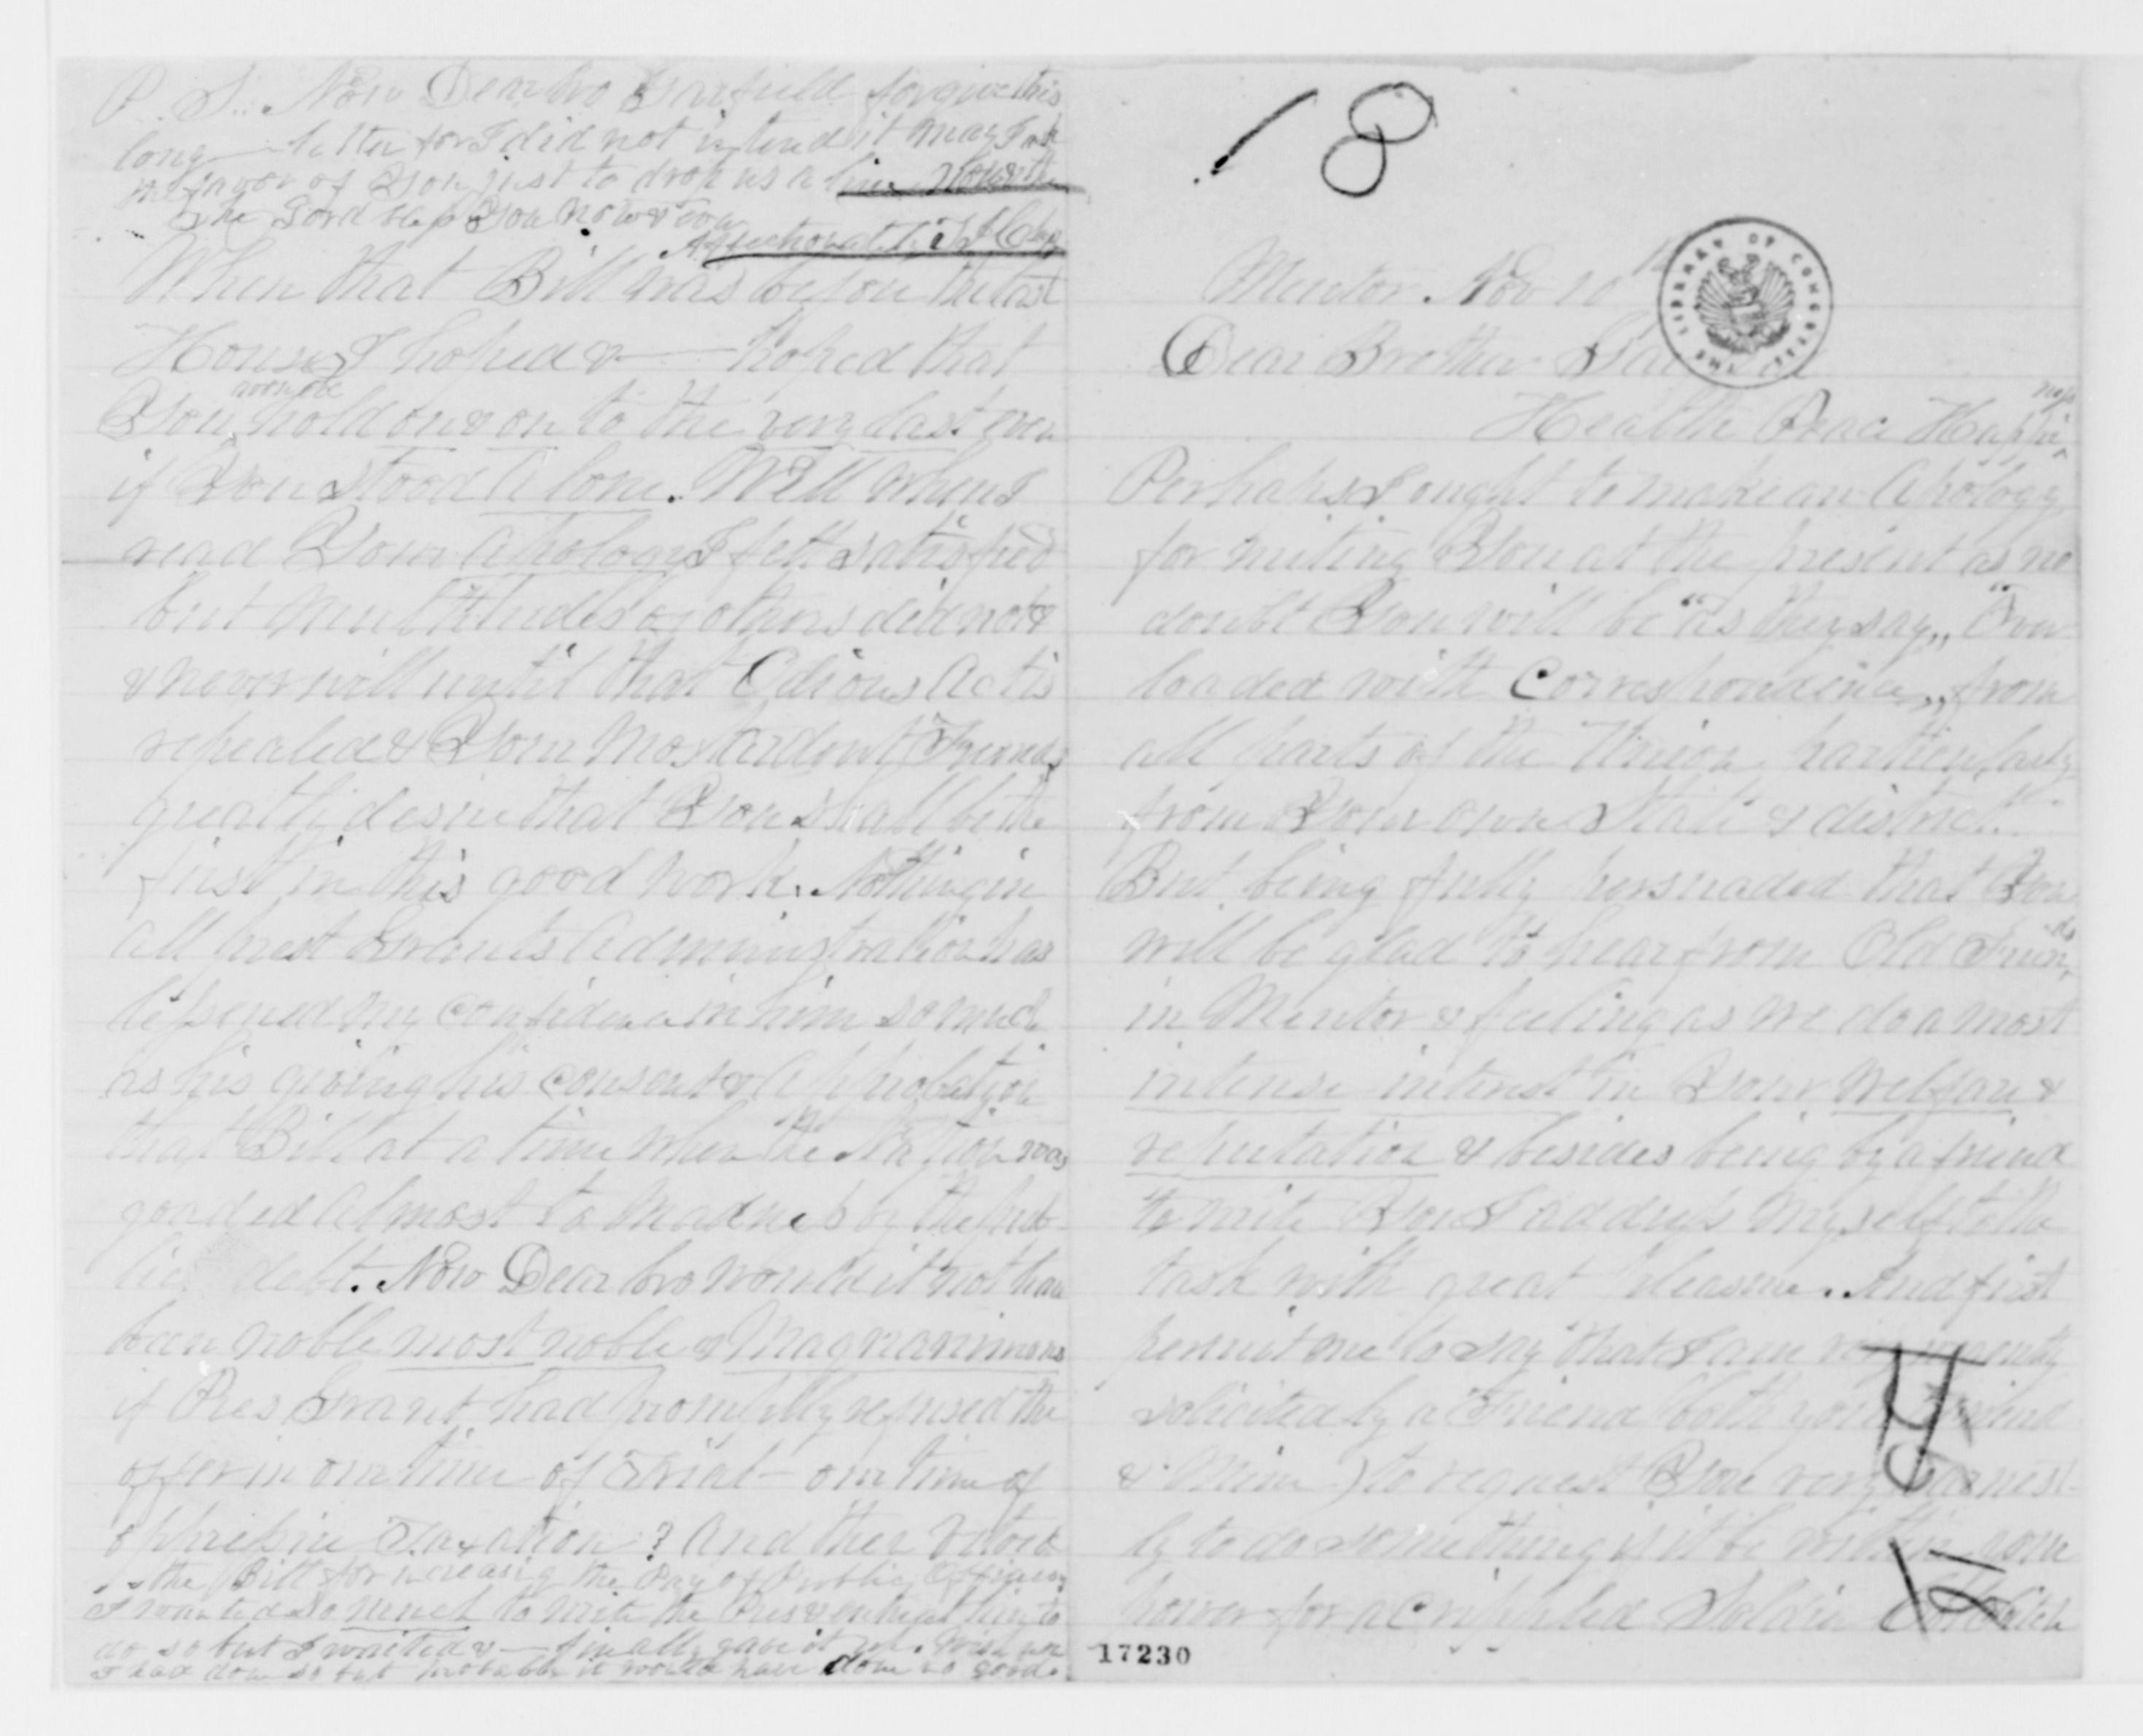 P. S. Now Dear bro Garfield forgive this
long letter for I did not intend it May I ask
the favor of You just to drop us a line
The Lord help You now & ever
Affectionately
When that Bill was before the last
House I hoped & hoped that
You would hold on & on to the very last even
if You stood Alone. Well when I
read Your Apology I felt satisfied
but multitudes of others did not &
& never will until that Odious Act is
repealed & Your Most Ardent Friends
greatly desire that You shall be the
first in this good work. Nothing in
all Prest Grants Administration has
lessened my confidence in him so much
as his giving his consent & Approbation
that Bill at a time when the Nation was
goaded Almost to Madness by the pub-
lic debt. Now Dear bro would it not have
been noble most noble & Magnanimous
if Pres Grant had promptly refused the
offer in our time of Trial - our time of
oppressive Taxation? And then Vetoed
the Bill for increasing the Pay of Public Officers
I wanted so much to write the Pres & entreat him to
do so but I waited & finally gave it up. Wish we
I had done so but probably it would have done no good.
18
Mentor. Nov 10th
Dear Brother
Health Peace Happiness
Perhaps I ought to make an Apology
for writing You at the present as no
doubt You will be "as they say,, "Over
loaded with Correspondence,, from
all parts of the Union, particularly
from Your own State & district.
But being fully persuaded that You
will be glad to hear from Old Friends
in Mentor & feeling as we do a most
intense interest in Your Welfare &
reputation & besides being by a friend
to write You I address myself to the
task with great pleasure. And first
permit me to say that I am
solicited by a Friend (both your friend
& Mine) to request You very earnest-
ly to do something if it be within your
power for a crippled Soldier
THE LIBRARY OF CONGRESS
17230